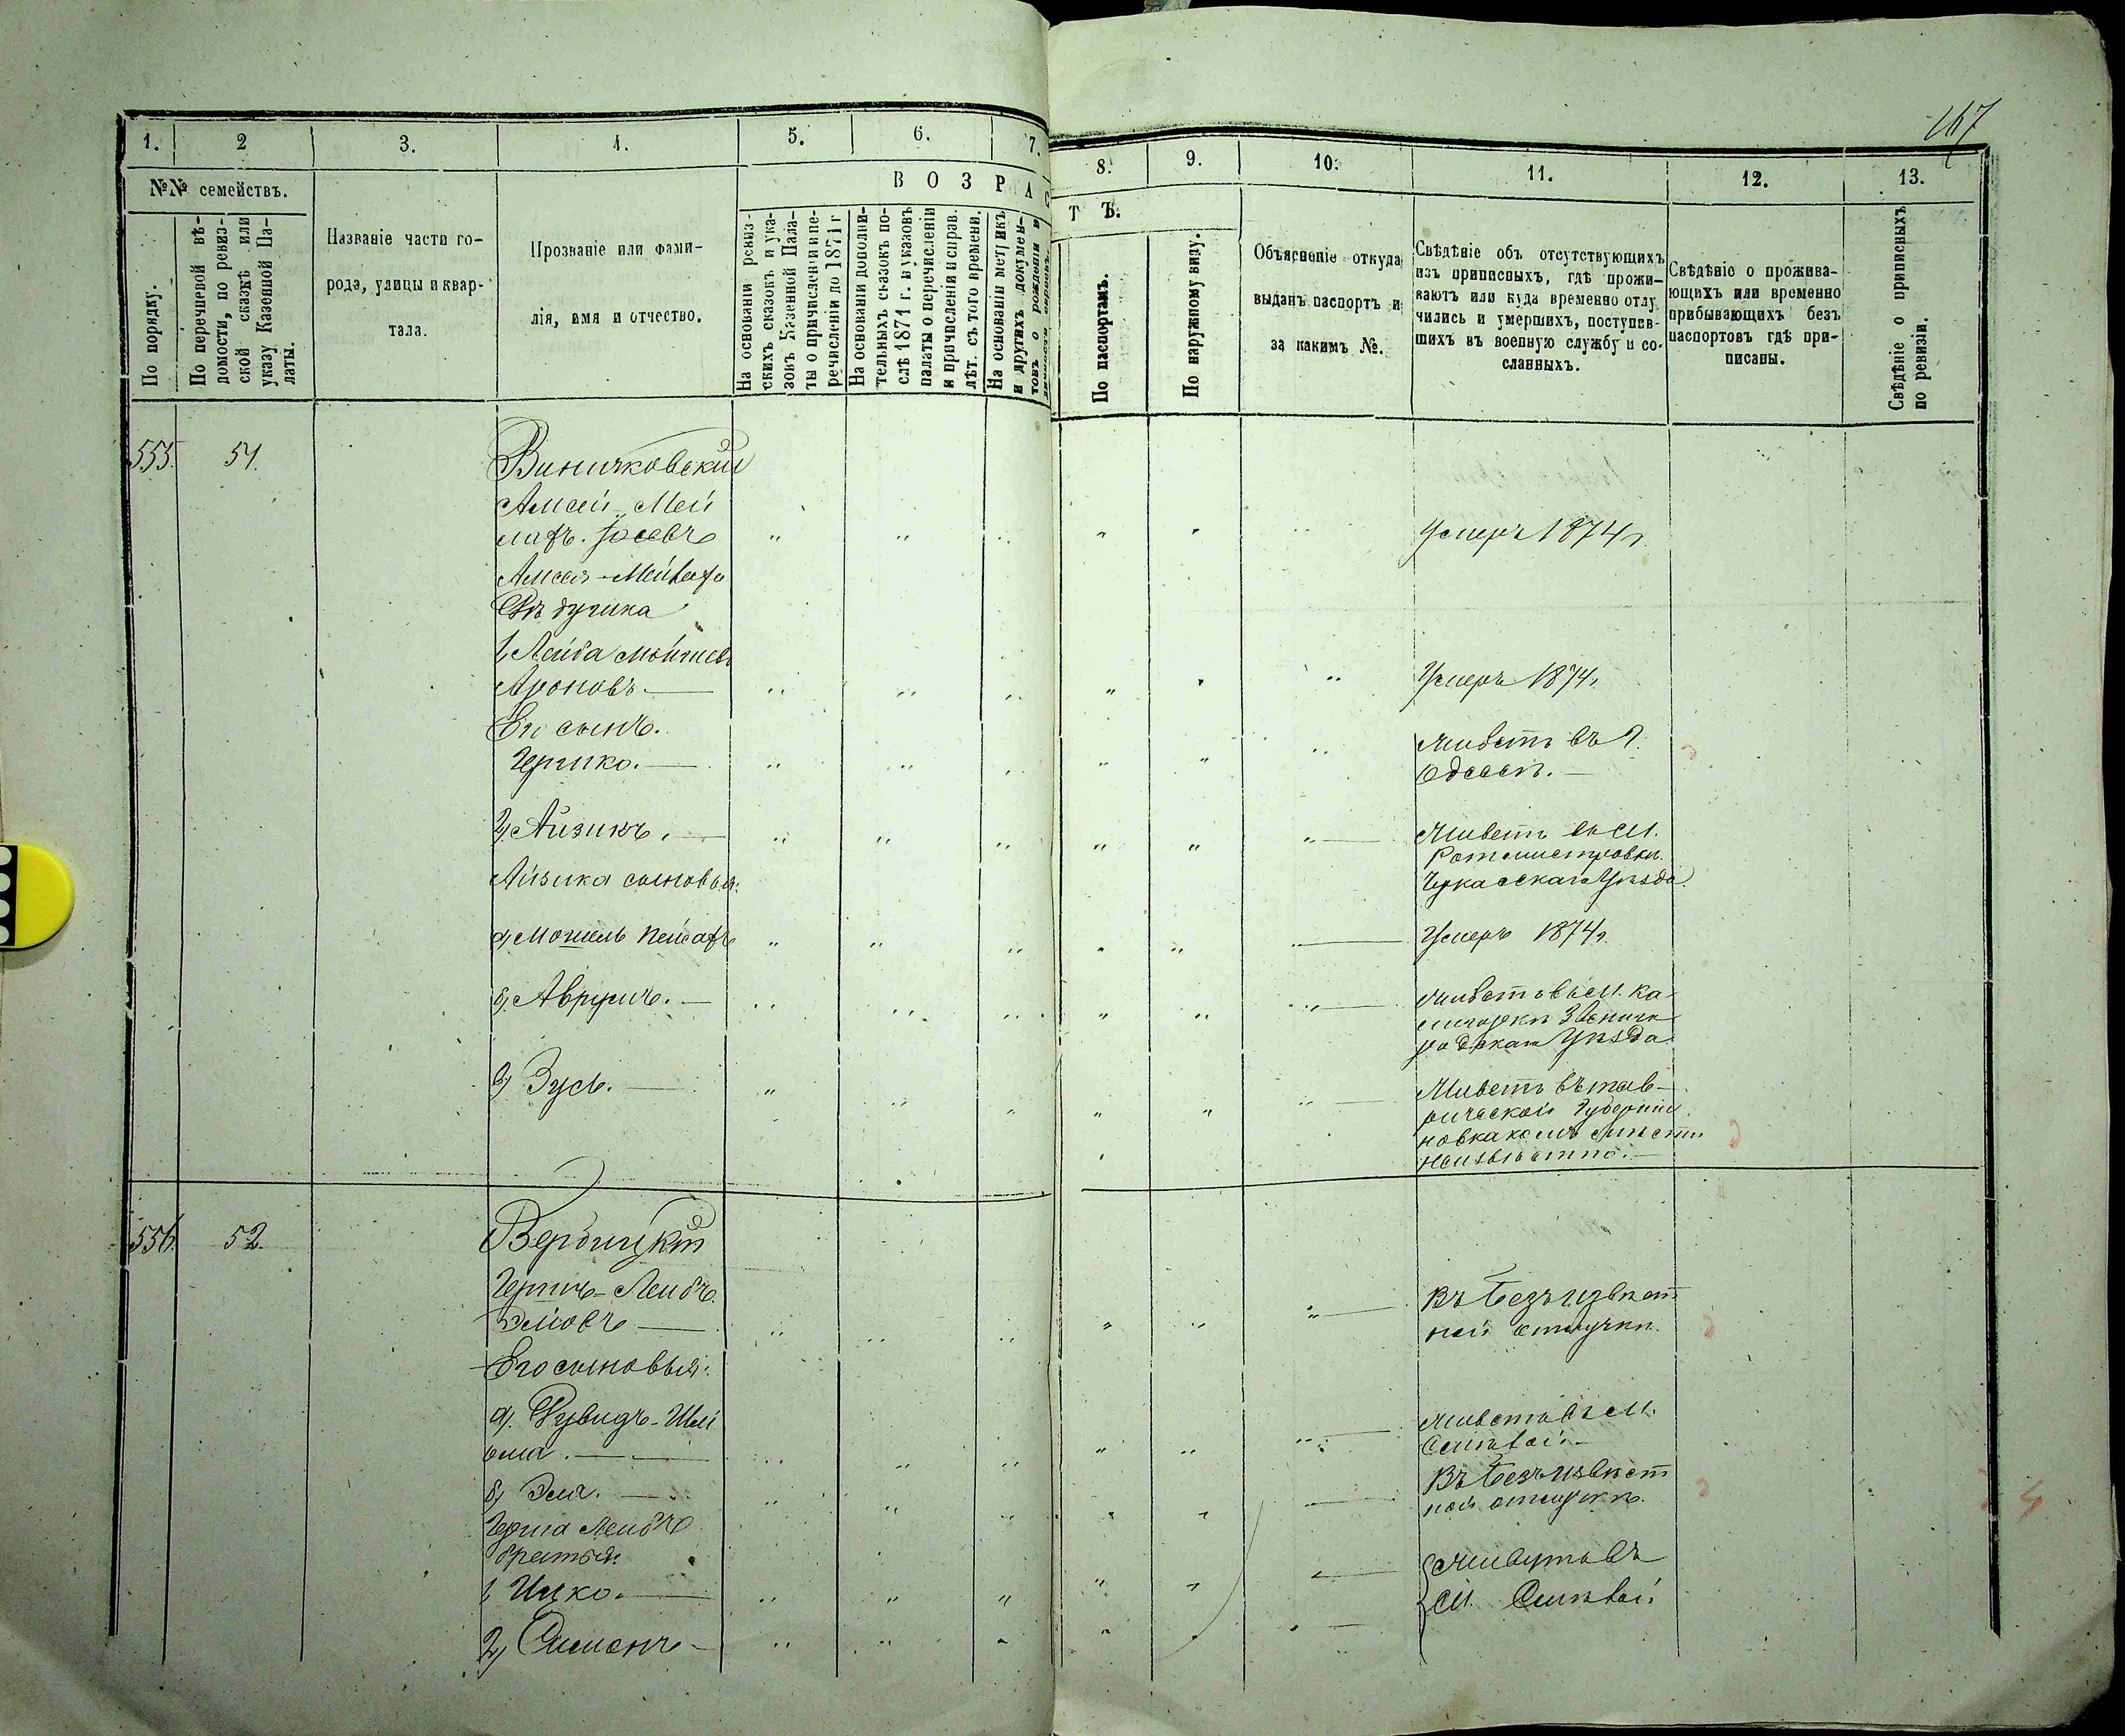 167
1. 2 3. 4. 5. 6. 7. 8. 9. 10. 11. 12. 13.
№№ семействъ.
По порядку.
По перечневой вѣ-
домости, по ревиз-
ской сказкѣ или
указу Казенной Па-
латы.
Названіе части го-
рода, улицы и квар-
тала.
Прозваніе или фами-
лія, имя и отчество.
ВОЗРАСТЪ.
На основаніи ревиз-
скихъ сказокъ и ука-
зовъ Казенной Пала-
ты о причисленіи и пе-
речисленіи до 1871 г
На основаніи дополни-
тельныхъ сказокъ по-
слѣ 1871 г. и указовъ
палаты о перечисленіи
и причисленіи исправ.
лѣт. съ того времени.
На основаніи метрикъ
и другихъ докумен-
товъ о рожденіи и
По паспортамъ.
По наружному виду.
Объясненіе откуда
выданъ паспортъ и
за какимъ №.
Свѣдѣніе объ отсутствующихъ
изъ приписныхъ, гдѣ прожи-
ваютъ или куда временно отлу
чились и умершихъ, поступив-
шихъ въ военную службу и со-
сланныхъ.
Свѣдѣніе о прожива-
ющихъ или временно
прибывающихъ безъ
паспортовъ гдѣ при-
писаны.
Свѣдѣніе о приписныхъ
по ревизіи.
555. 51.
Виничковскій
Мей
Іосевъ
Умеръ 1874 г.
1, Лейба
Ароновъ.
Умеръ 1874 г.
Его сынъ.
Гершко.
Живетъ въ г.
Одессѣ.
2, Айзикъ.
Живетъ въ м.
Ротмистровки
Черкасскаго Уѣзда.
Айзика сыновья:
а, Мошель Пейсахъ
Умеръ 1874 г.
б, Аврумъ.
Живетъ въ м. Ка-
Звениго
родскаго Уѣзда
в, Зусь.
Живетъ въ Тав-
рической Губерніи
но въ какомъ мѣстѣ
неизвѣстно.
556. 52.
Вербицкій
Гершъ-Лейбъ
Въ безъизвѣст
ной отлучки.
Его сыновья:
а, Рувидъ-Шлі
ома.
Живетъ въ м.
Смѣлой.
б, Эля.
Въ безъизвѣст
ной отлучкѣ.
Герша Лейбъ
братья:
1, Ицко.
Живутъ въ
м. Смѣлой
2, Симонъ